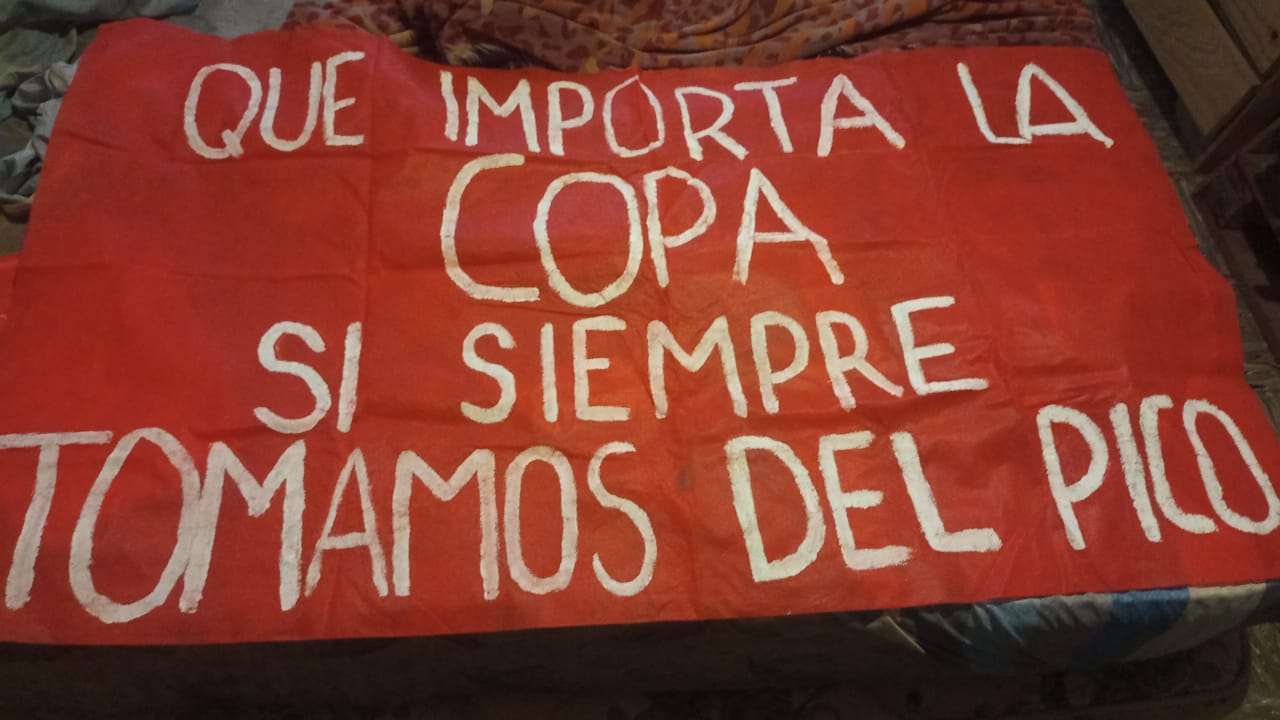 QUE IMPORTA LA
COPA
SI SIEMPRE
TOMAMOS DEL PICO